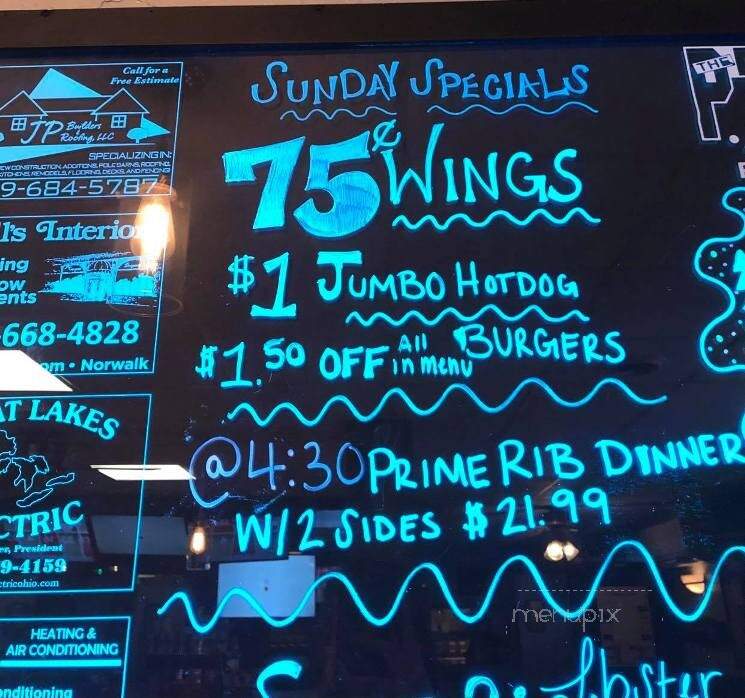 Call for a
Free Estimate
JP Builders
Roofing, LLC
SPECIALIZING IN:
NEW CONSTRUCTION, ADDITIONS, POLE BARNS, ROOFING,
KITCHENS, REMODELS, FLOORING, DECKS, AND FENCING
9-684-5787
l's Interio
ing
ow
ents
-668-4828
om • Norwalk
AT LAKES
CTRIC
er, President
9-4159
ctricohio.com
HEATING &
AIR CONDITIONING
nditioning
SUNDAY SPECIALS
75¢ WINGS
$1 JUMBO HOTDOG
$1.50 OFF All in menu BURGERS
@4:30 PRIME RIB DINNER
W/2 SIDES $21.99
Lobster
THE
P.
menupix